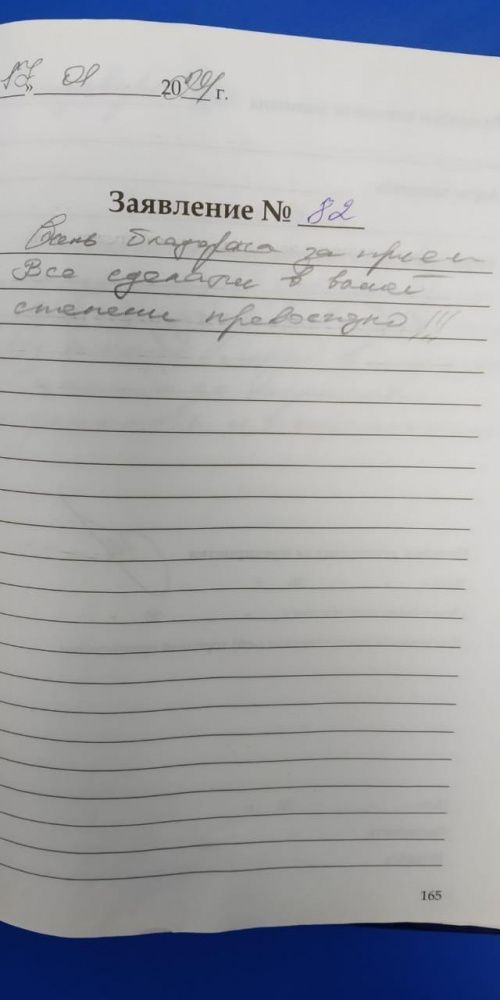 17» 01 2024 г.
Заявление № 82
Очень благодарна за прием
Все сделали в вашей
степени превосходно!!!
165